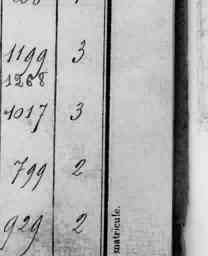 1199 3
1268
1017 3
799 2
929 2
matricule.